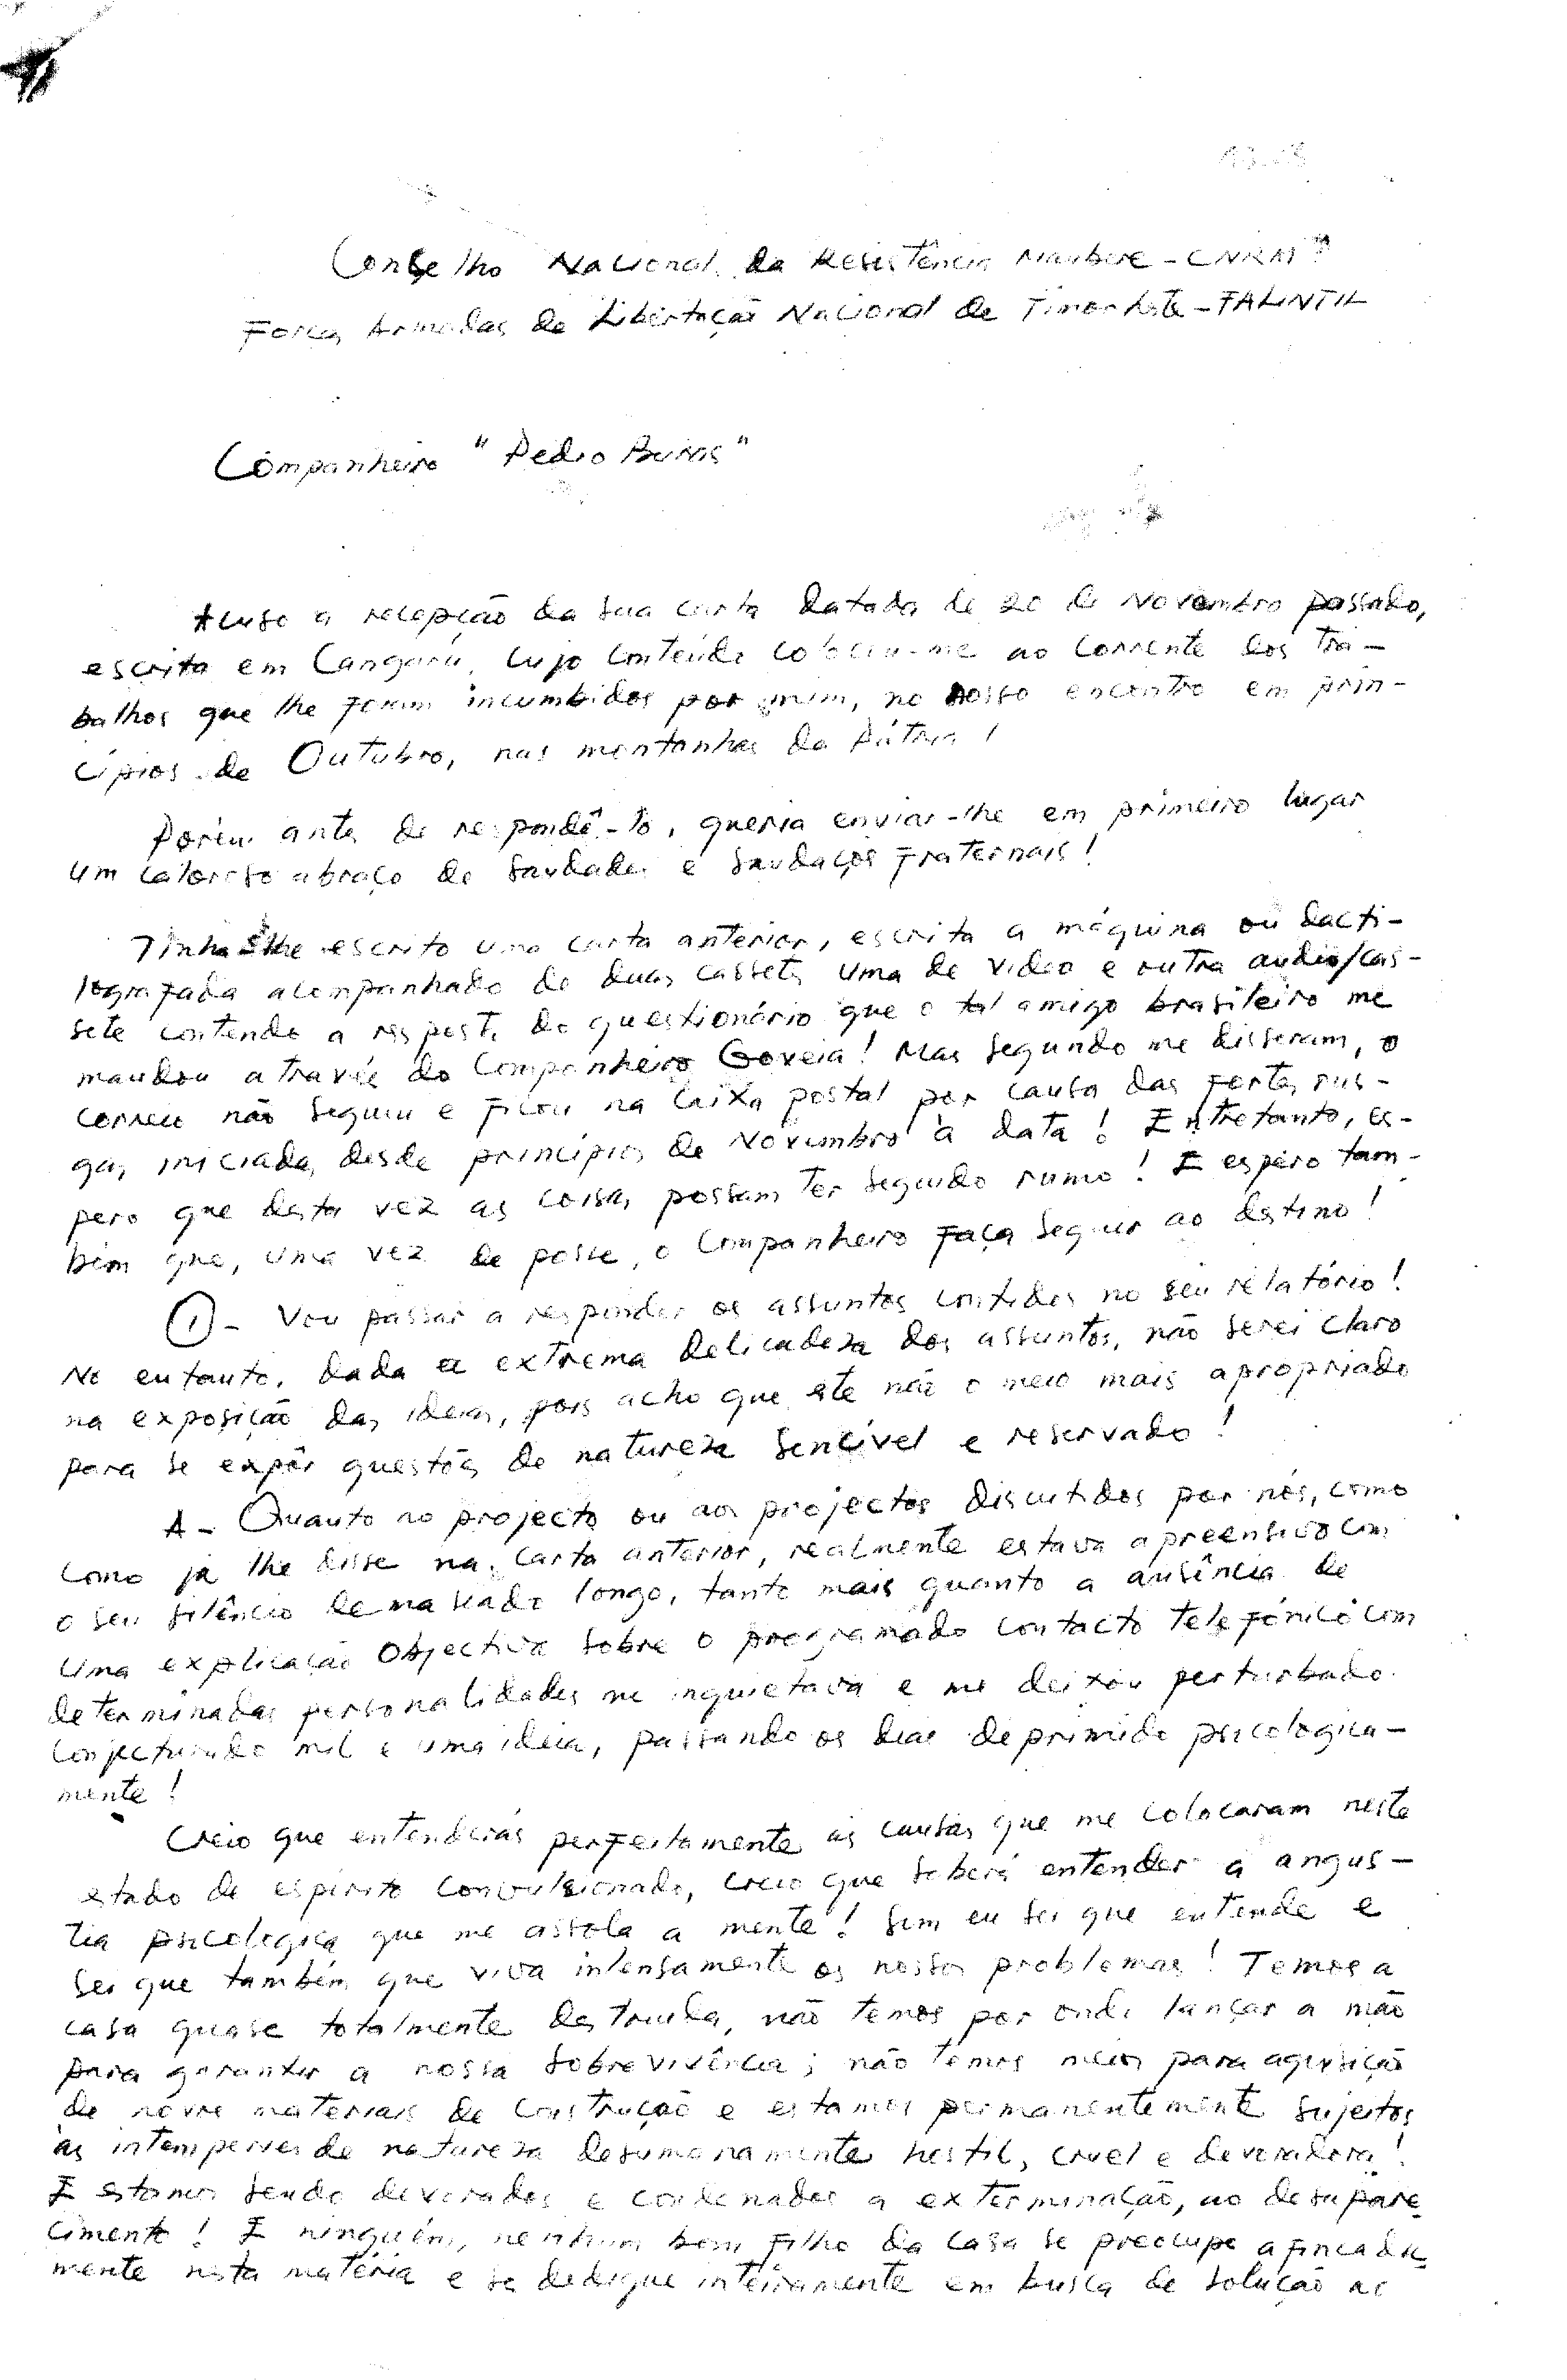 Conselho Nacional da Resistência Maubere - CNRM
Forças Armadas de Libertação Nacional de Timor Leste - FALINTIL
Companheiro "Pedro
Acuso a recepção da sua carta datada de 20 de Novembro passado,
escrita em Canguru, cujo conteúdo colocou-me ao corrente dos tra-
balhos que lhe foram incumbidos por mim, no nosso encontro em prin-
cípios de Outubro, nas montanhas da Pátria!
Porém antes de respondê-to, queria enviar-lhe em primeiro lugar
um caloroso abraço de saudades e saudações fraternais!
Tinha-lhe escrito uma carta anterior, escrita a máquina ou dacti-
lografada acompanhado de duas cassetes uma de video e outra audio/cas-
sete contendo a resposta do questionário que o tal amigo brasileiro me
mandou através do Companheiro Goveia! Mas segundo me disseram, o
correio não seguiu e ficou na caixa postal por causa das fortes rus-
gas, iniciadas desde princípios de Novembro à data! Entretanto, es-
pero que desta vez as coisas possam ter seguido rumo! E espero tam-
bém que, uma vez de posse, o Companheiro faça seguir ao destino!
① - Vou passar a responder os assuntos contidos no seu relatório!
No entanto, dada a extrema delicadeza dos assuntos, não serei claro
na exposição das ideias, pois acho que este não o meio mais apropriado
para se expôr questões de natureza sencível e reservado!
A - Quanto ao projecto ou aos projectos discutidos por nós, como
como já lhe disse na carta anterior, realmente estava apreensivo com
o seu silêncio demasiado longo, tanto mais quanto a ausência de
uma explicação objectiva sobre o programado contacto telefónico com
determinadas personalidades me inquietava e me deixou perturbado
conjecturando mil e uma ideia, passando os dias deprimido psicologica-
mente!
Creio que entenderás perfeitamente as causas que me colocaram neste
estado de espírito convulsionado, creio que saberá entender a angus-
tia psicologica que me assola a mente! Sim eu sei que entende e
sei que também que viva intensamente os nossos problemas! Temos a
casa quase totalmente destruida, não temos por onde lançar a mão
para garantir a nossa sobrevivência; não temos meios para aquisição
de novos materiais de construção e estamos permanentemente sujeitos
às intemperies de natureza desumanamente hostil, cruel e devoradora!
E estamos sendo devorados e condenados a exterminação, ao desapare-
cimento! E ninguém, nenhum bom filho da casa se preocupe afincada-
mente nesta matéria e se dedique inteiramente em busca de solução ao